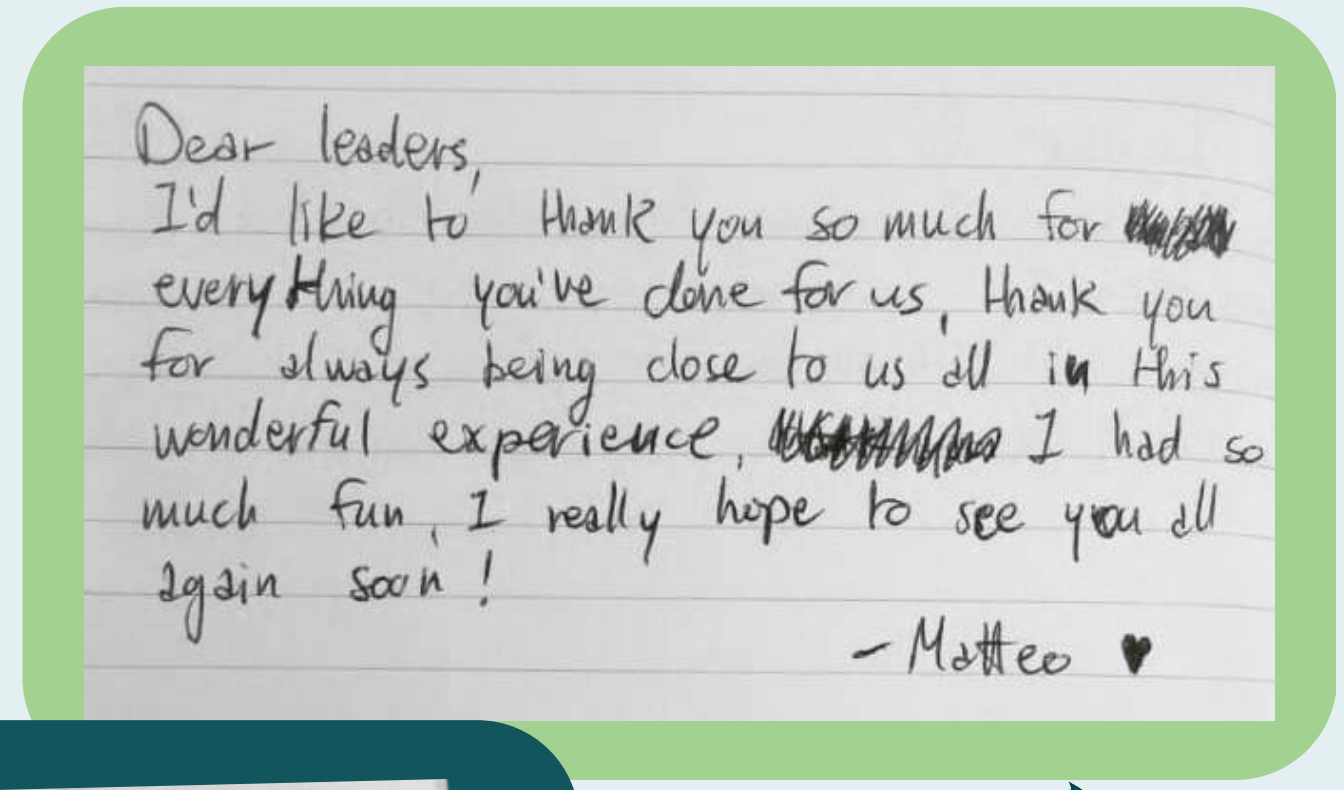 Dear leaders,
I'd like to thank you so much for
everything you've done for us, thank you
for always being close to us all in this
wonderful experience, I had so
much fun, I really hope to see you all
again soon!
- Matteo ♥